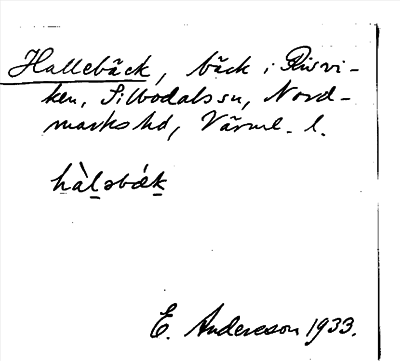 Hallebäck, bäck i Risvi-
ken, Silbodals sn, Nord-
marks hd, Värml. l.
hàlǝbǽk
E. Andersson 1933.